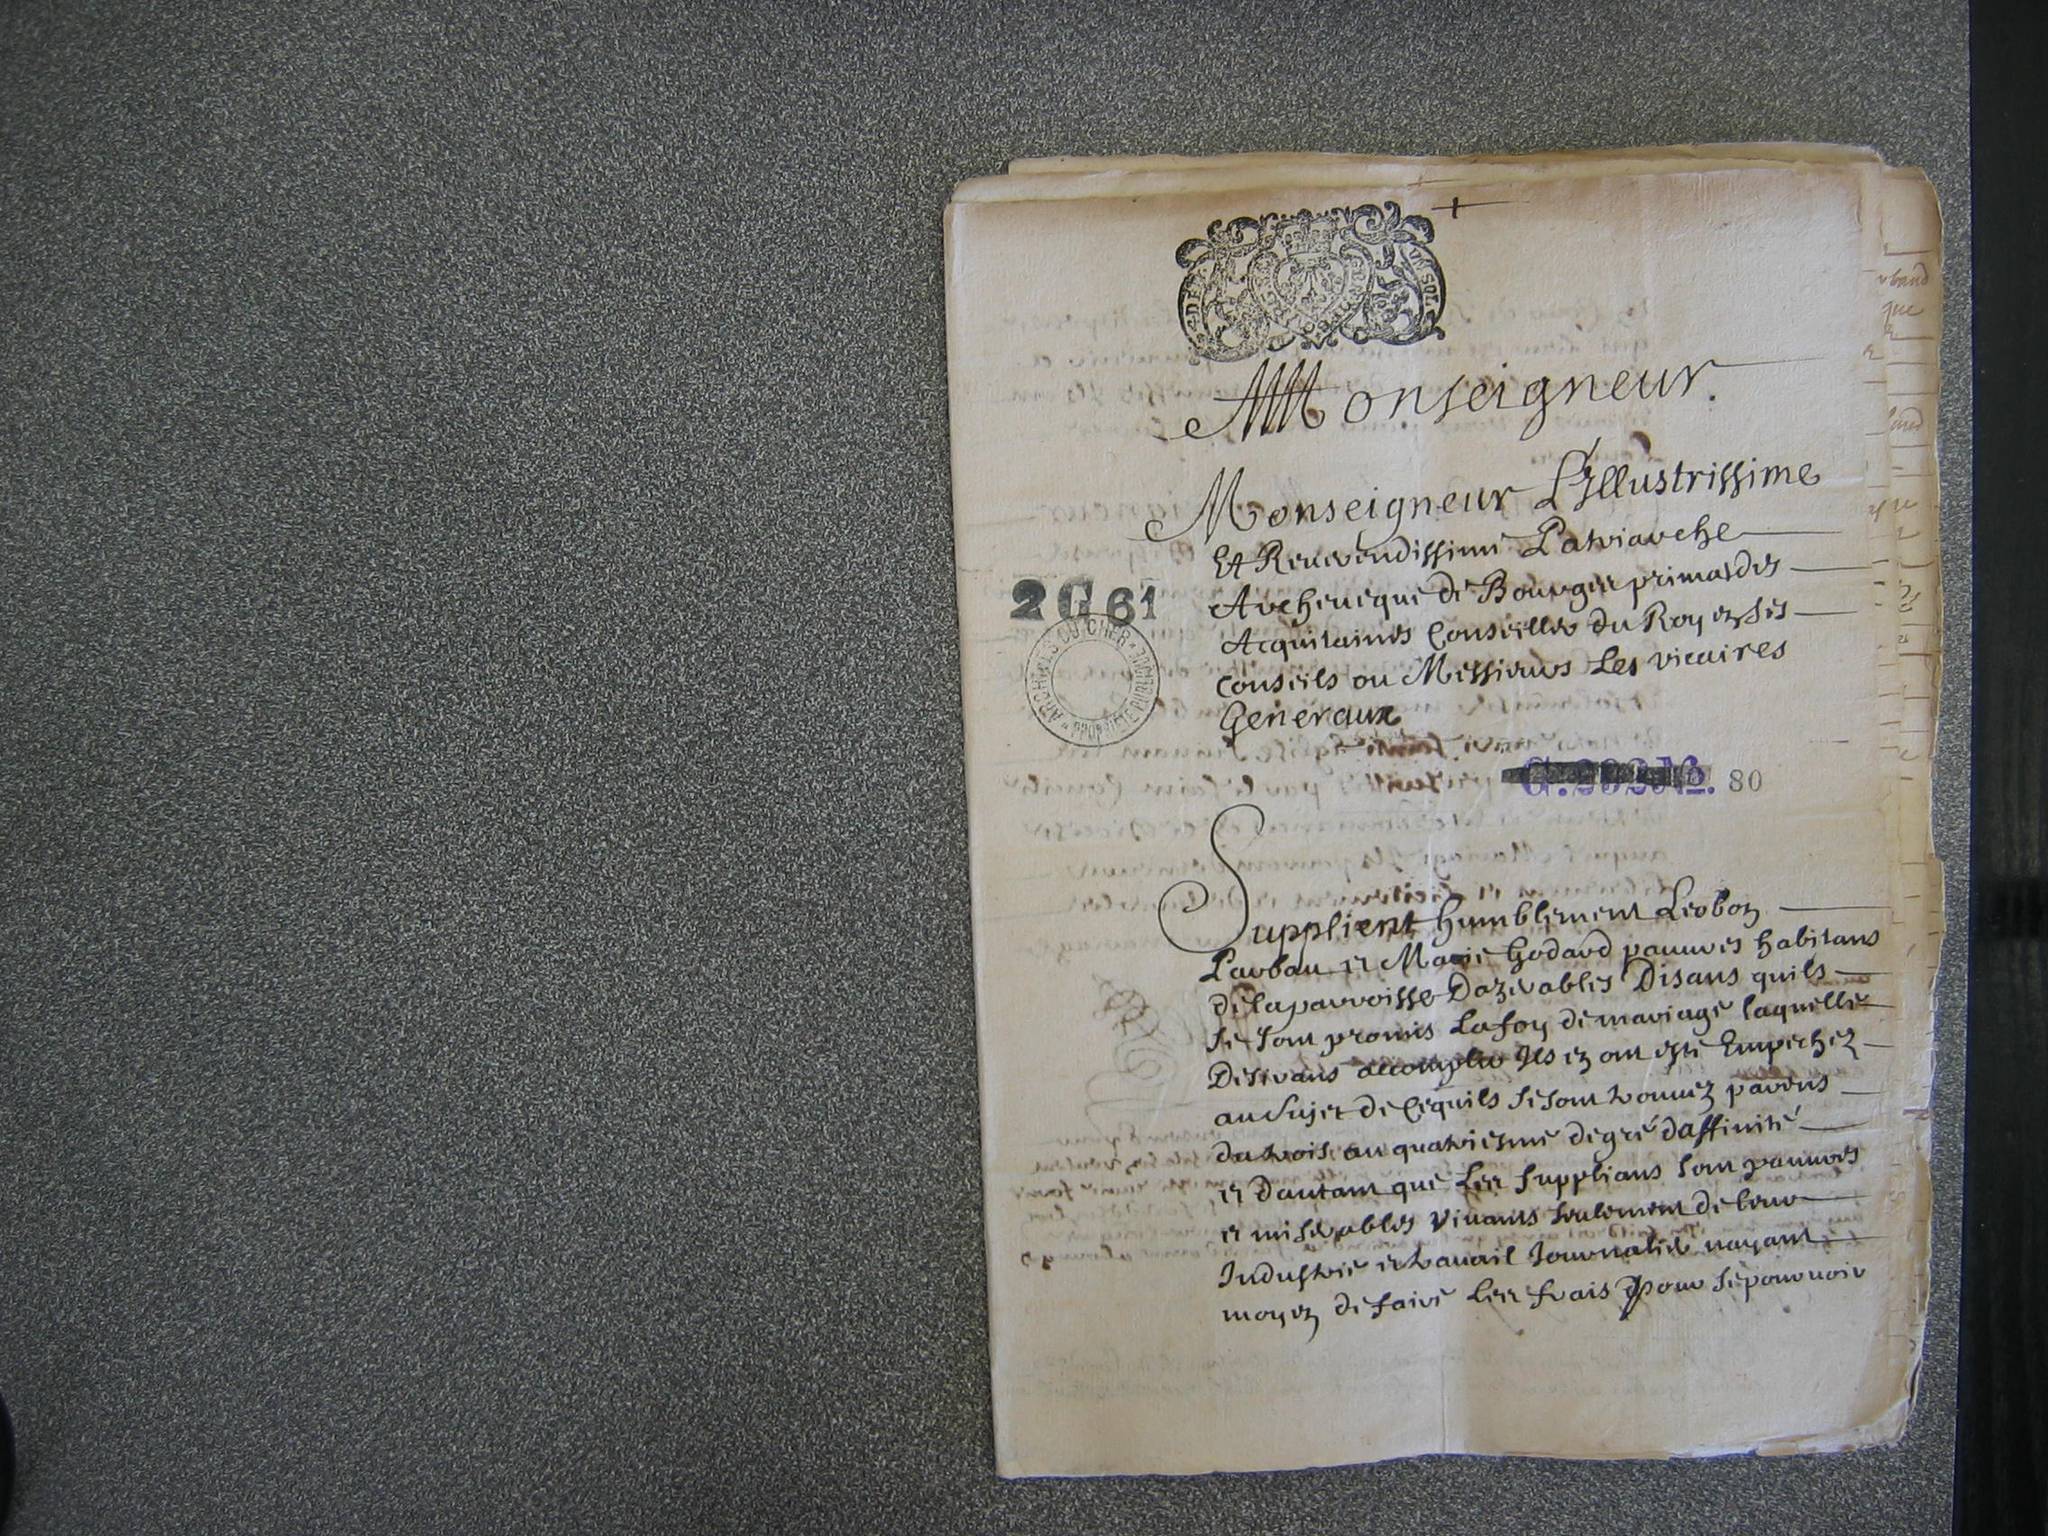 Monseigneur.
Monseigneur L'Illustrissime
Et Reuerendissime Patriarche
Archeueque de Bourges primat des
Acquitaines Conseiller du Roy en ses
Conseils ou Messieurs Les vicaires
Generaux
2 G 61
ARCHIVES DU CHER * PROPRIÉTÉ PUBLIQUE *
80
Supplient humblement Leobon
et Marie Godard pauures habitans
de la parroisse Dazerables Disans quils
se sont promis La foy de mariage laquelle
Desirans accomplir Ils en ont esté Empechez
au sujet de Cequils se sont trouuez parens
du trois au quatriesme degré daffinité
et Dautant que Les supplians sont pauures
et miserables viuants seulement de leur
Industrie et trauail Journalier nayant
moyen de faire Les frais pour se pouruoir